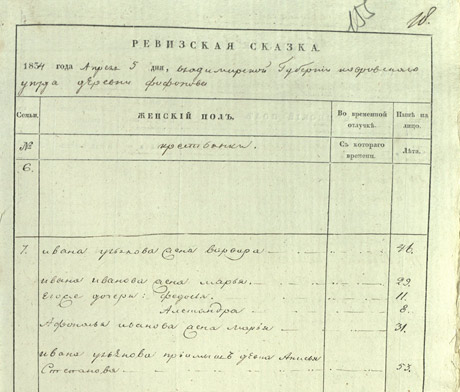 18.
РЕВИЗСКАЯ СКАЗКА.
1834 года Апреля 5 дня, Владимирской Губернии покровского
уезда деревни
Семьи.
ЖЕНСКІЙ ПОЛЪ.
Во временной отлучкѣ.
Нынѣ на лицо.
№
крестьянки.
Съ котораго времени.
Лѣта.
6.
7. ивана жена варвара 46.
ивана иванова жена марья 29.
Егоже дочери: Федосья 11.
Александра 8.
Афонасья иванова жена марія 31.
ивана девка
Степанова 53.